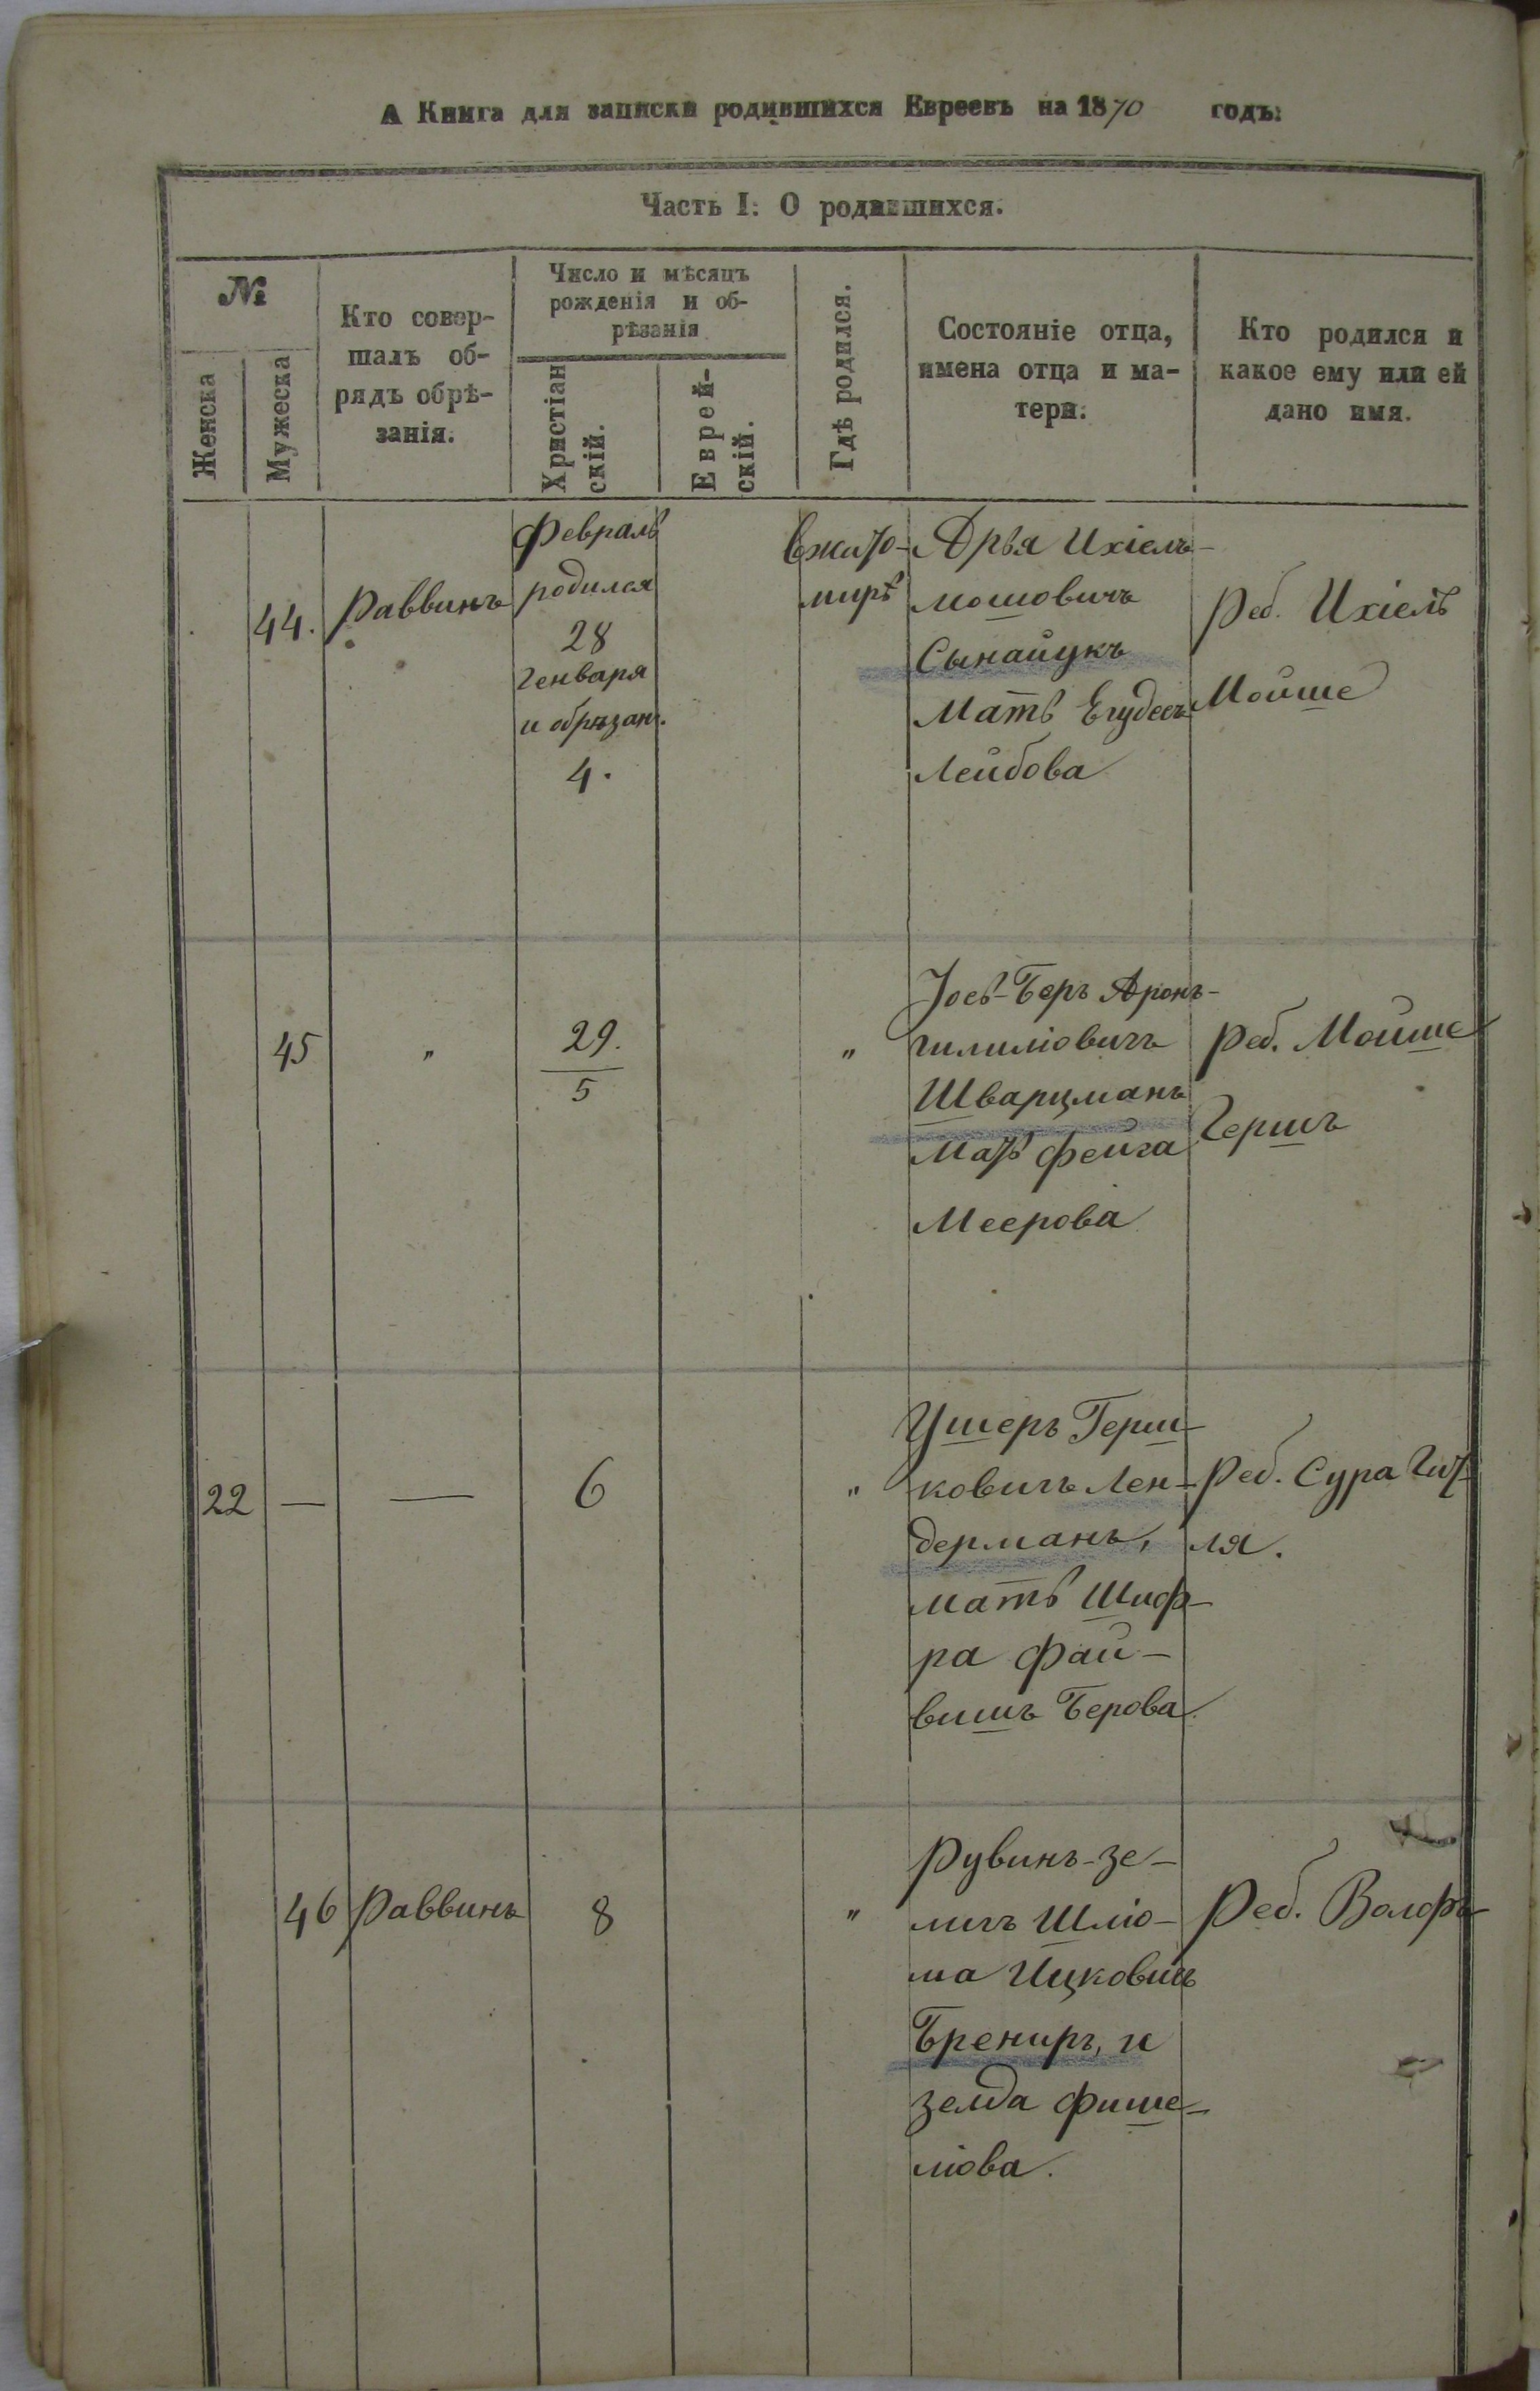 А Книга для записки родившихся Евреевъ на 1870 годъ:
Часть I: О родившихся.
№
Женска
Мужеска
Кто совер-
шалъ об-
рядъ обрѣ-
занія.
Число и мѣсяцъ
рожденія и об-
рѣзанія
Христіан
скій.
Еврей-
скій.
Гдѣ родился.
Состояніе отца,
имена отца и ма-
тери.
Кто родился и
какое ему или ей
дано имя.
44.
Раввинъ
Февраль
родился
28
Генваря
и обрѣзан.
4.
в Жито-
мирѣ
Арья Ихіель-
мошовичъ
Сынайукъ
Мать Егудесъ
Лейбова
Реб. Ихіель
Мойше
45
"
29.
5
"
Іось-Беръ Аронъ-
Шварцманъ
Мать Фейга
Меерова
Реб. Мойше
Гершъ
22
—
—
6
"
Ушеръ Герш-
ковичъ Лен-
дерманъ,
мать Шиф-
ра Фай-
вишъ Берова
Реб. Сура Гит-
ля.
46
Раввинъ
8
"
Рувинъ-Зе-
личъ Шліо-
ма Ицковичъ
Брениръ, и
Зелда Фише-
ліова.
Реб. Волфъ